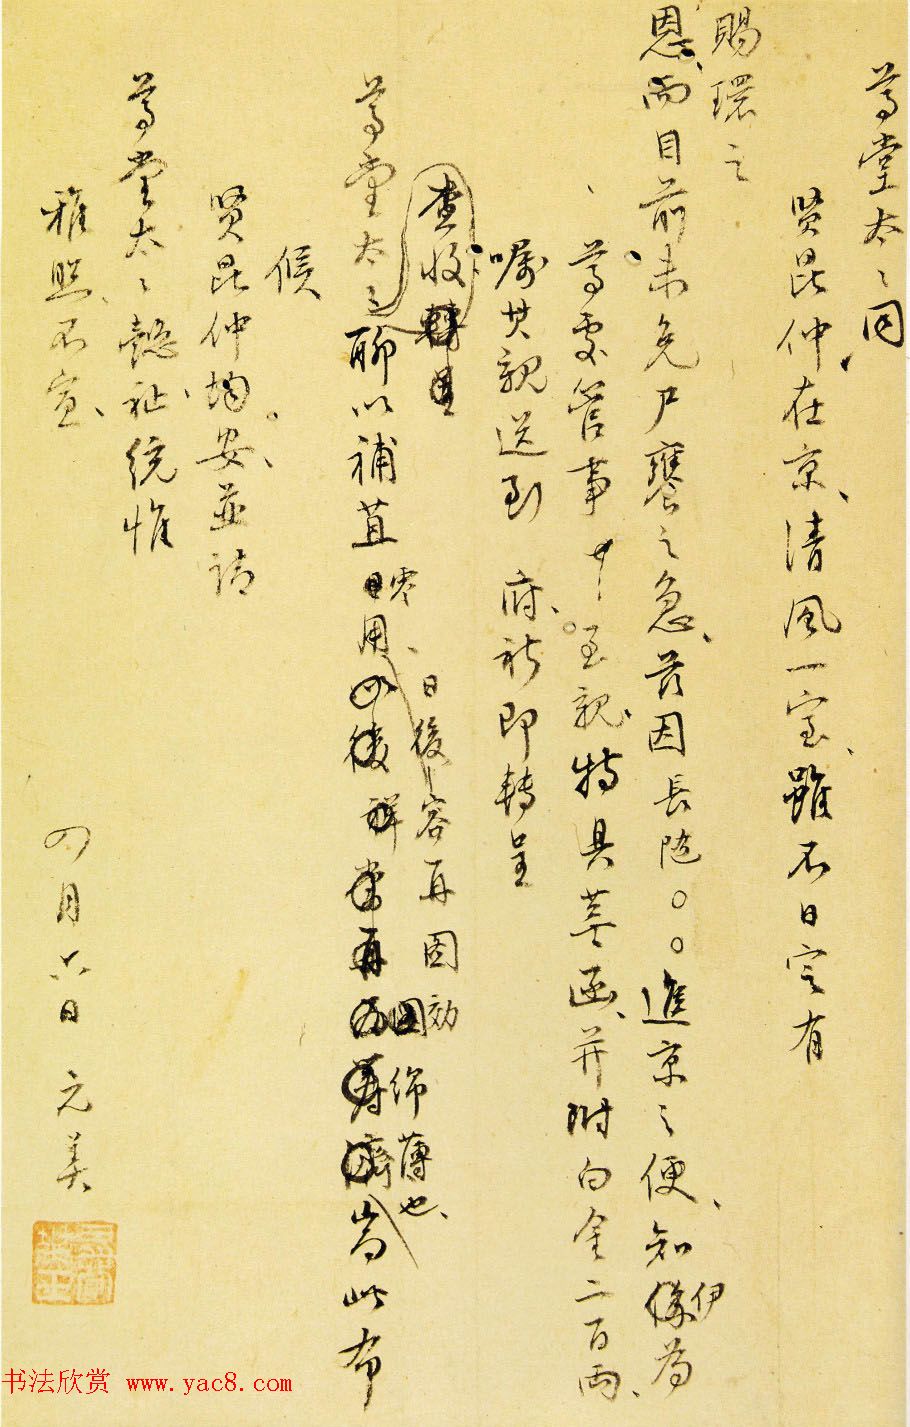 尊堂太々同
賢昆仲在京、清風一室、雖不日定有
賜環之
恩、而目前未免尸饔之急、茲因長隨〇〇進京之便、知伊為
尊處管事 至親、特具莖函、并附白金二百兩、
囑其親送到 府、祈即轉呈
查收轉呈
尊堂太々聊以補苴日零用、
日後容再圖効綿薄也、
耑此布
候
賢昆仲均安、並請
尊堂太々懿祉統惟
雅照不宣、
四月六日 元美
书法欣赏 www.yac8.com